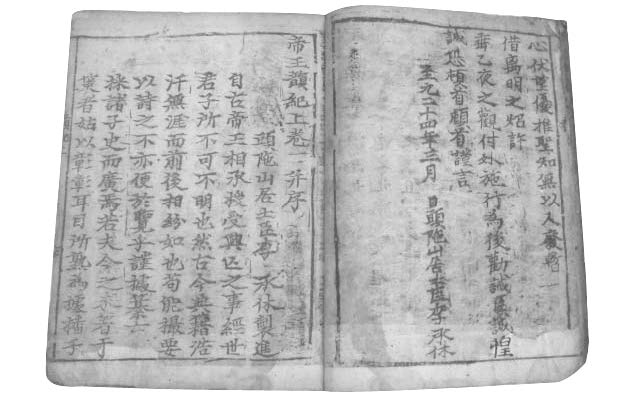 心伏望優推聖知無以人廢
借离明之炤許
垂乙夜之觀付外施行為後勸誡臣誠惶
誠恐頓首頓首謹言
至元二十四年三月 日頭陁山居士臣李承休
帝王韻紀上卷并序
頭陁山居士臣李承休製進
自古帝王相承授受興亡之事經世
君子所不可不明也然古今典籍浩
汗無涯而前後相紛如也苟能撮要
以詩之不亦便於覽乎謹據某
採諸子史而廣焉若夫今之未著于
策者姑以彰彰耳目所熟為據播于